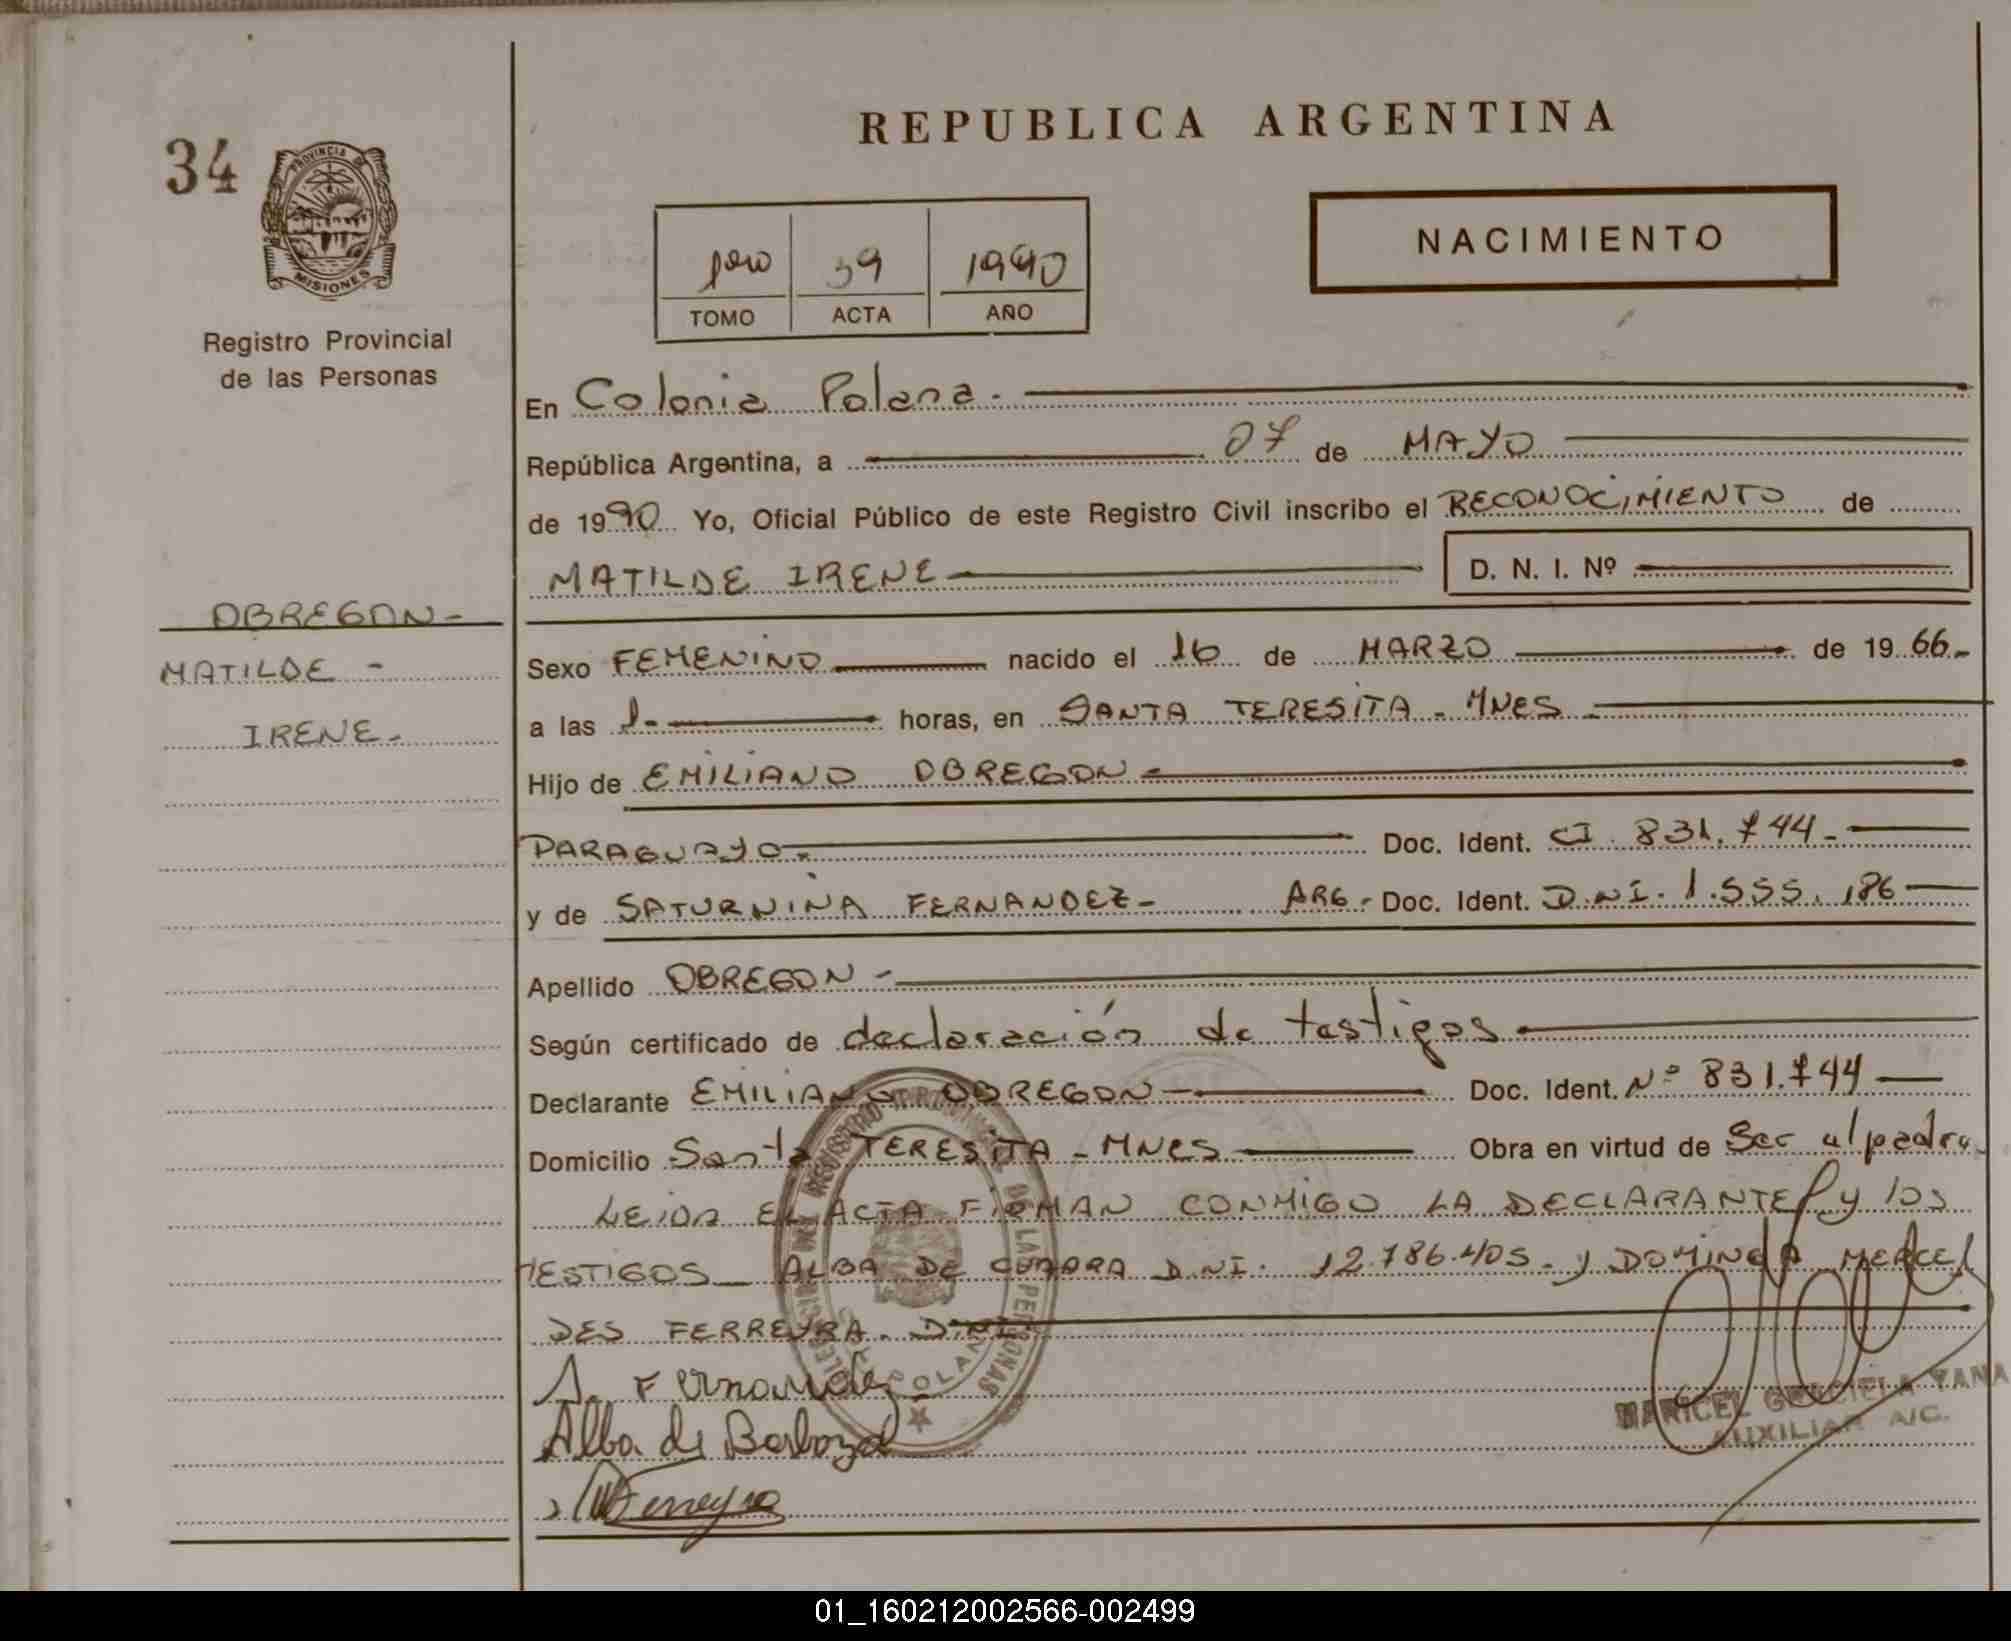 REPUBLICA ARGENTINA
34
PROVINCIA DE
MISIONES
Registro Provincial
de las Personas
1ero 39 1990
TOMO ACTA AÑO
NACIMIENTO
En Colonia Polana.
República Argentina, a 07 de MAYO
de 1990 Yo, Oficial Público de este Registro Civil inscribo el RECONOCIMIENTO de
MATILDE IRENE D. N. I. Nº
OBREGON-
MATILDE -
IRENE-
Sexo FEMENINO nacido el 16 de MARZO de 1966-
a las 1- horas, en SANTA TERESITA - MNES -
Hijo de EMILIANO OBREGON-
PARAGUAYO- Doc. Ident. CI 831.744-
y de SATURNINA FERNANDEZ- ARG- Doc. Ident. D.NI. 1.555.186
Apellido OBREGON-
Según certificado de declaración de testigos
Declarante EMILIANO OBREGON- Doc. Ident. Nº 831.744
Domicilio Santa TERESITA - MNES Obra en virtud de Ser el padre
LEIDA EL ACTA FIRMAN CONMIGO LA DECLARANTE y los
TESTIGOS ALBA DE D.NI. 12.786.405- y DOMINGA MERCE
DES FERREYRA. DNI
S. Fernandez
Alba de Barboza
Ferreyra
MARICEL GRACIELA YANA
AUXILIAR A/C.
01_160212002566-002499